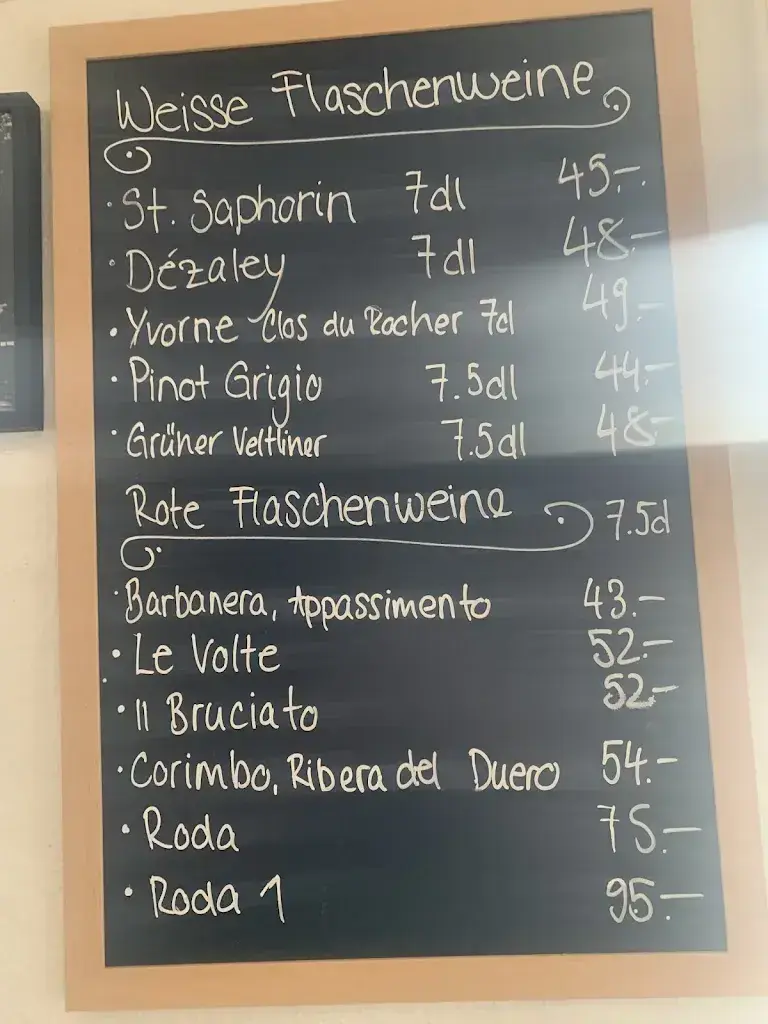 Weisse Flaschenweine
· St. Saphorin 7dl 45.-
· Dézaley 7dl 48.-
· Yvorne Clos du Rocher 7dl 49.-
· Pinot Grigio 7.5dl 44.-
· Grüner Veltliner 7.5dl 48.-
Rote Flaschenweine 7.5d
· Barbanera, Appassimento 43.-
· Le Volte 52.-
· Il Bruciato 52.-
· Corimbo, Ribera del Duero 54.-
· Roda 75.-
· Roda 1 95.-